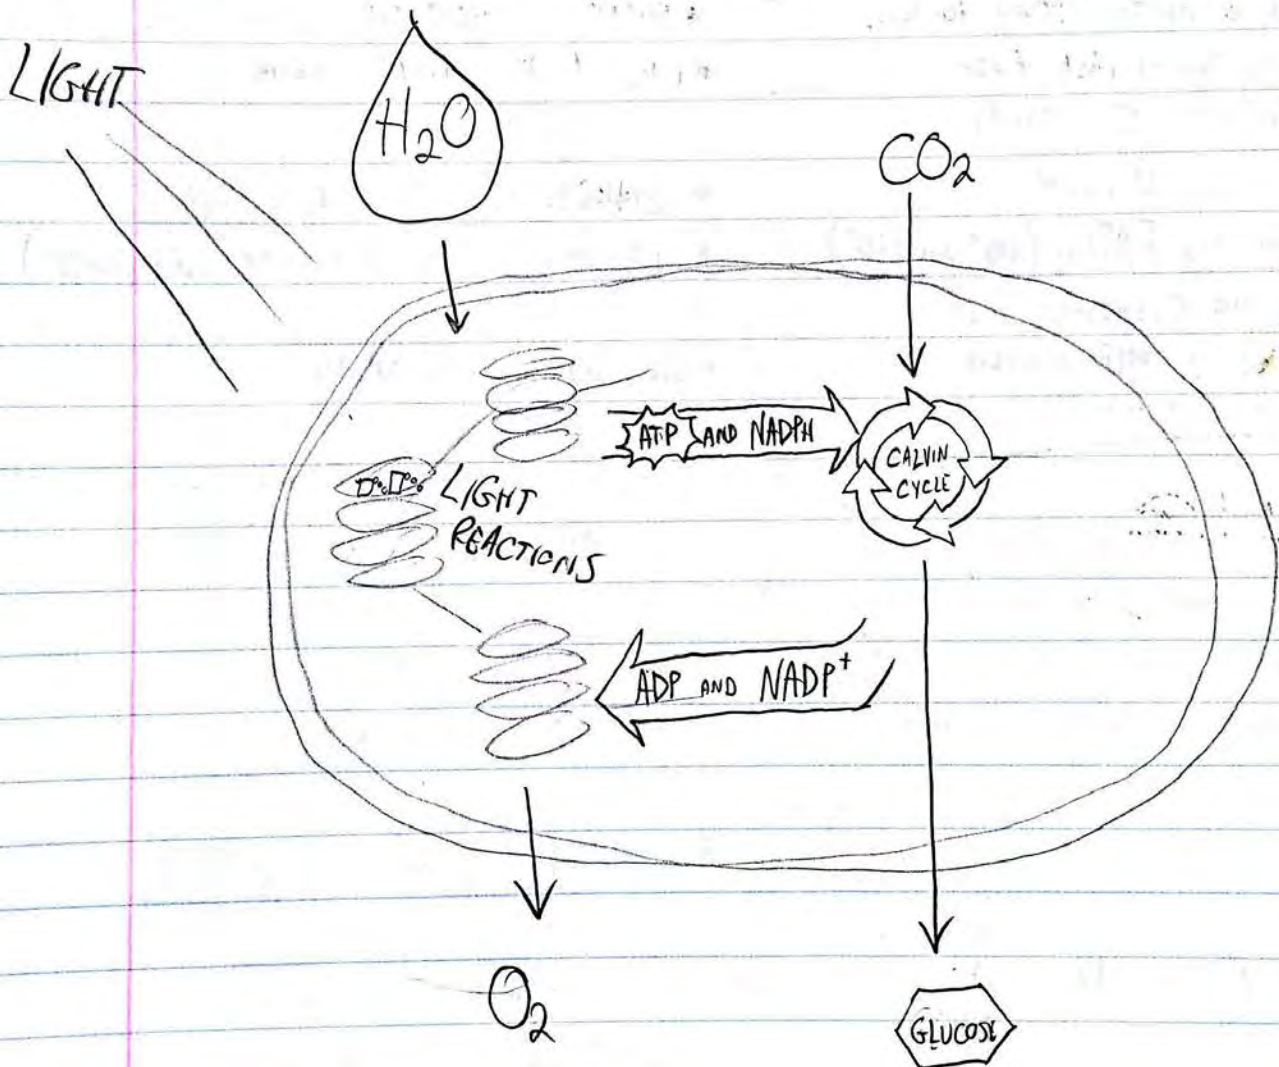 LIGHT
H₂O
CO₂
ATP AND NADPH
CALVIN
CYCLE
LIGHT
REACTIONS
ADP AND NADP⁺
O₂
GLUCOSE